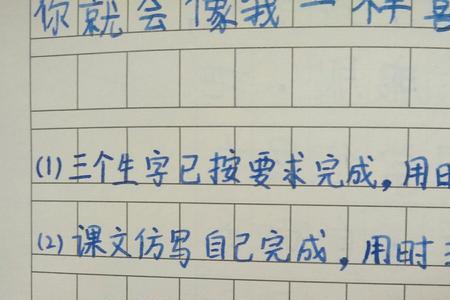 你就会像我一样喜
(1)三个生字已按要求完成，用时
(2)课文仿写自己完成，用时